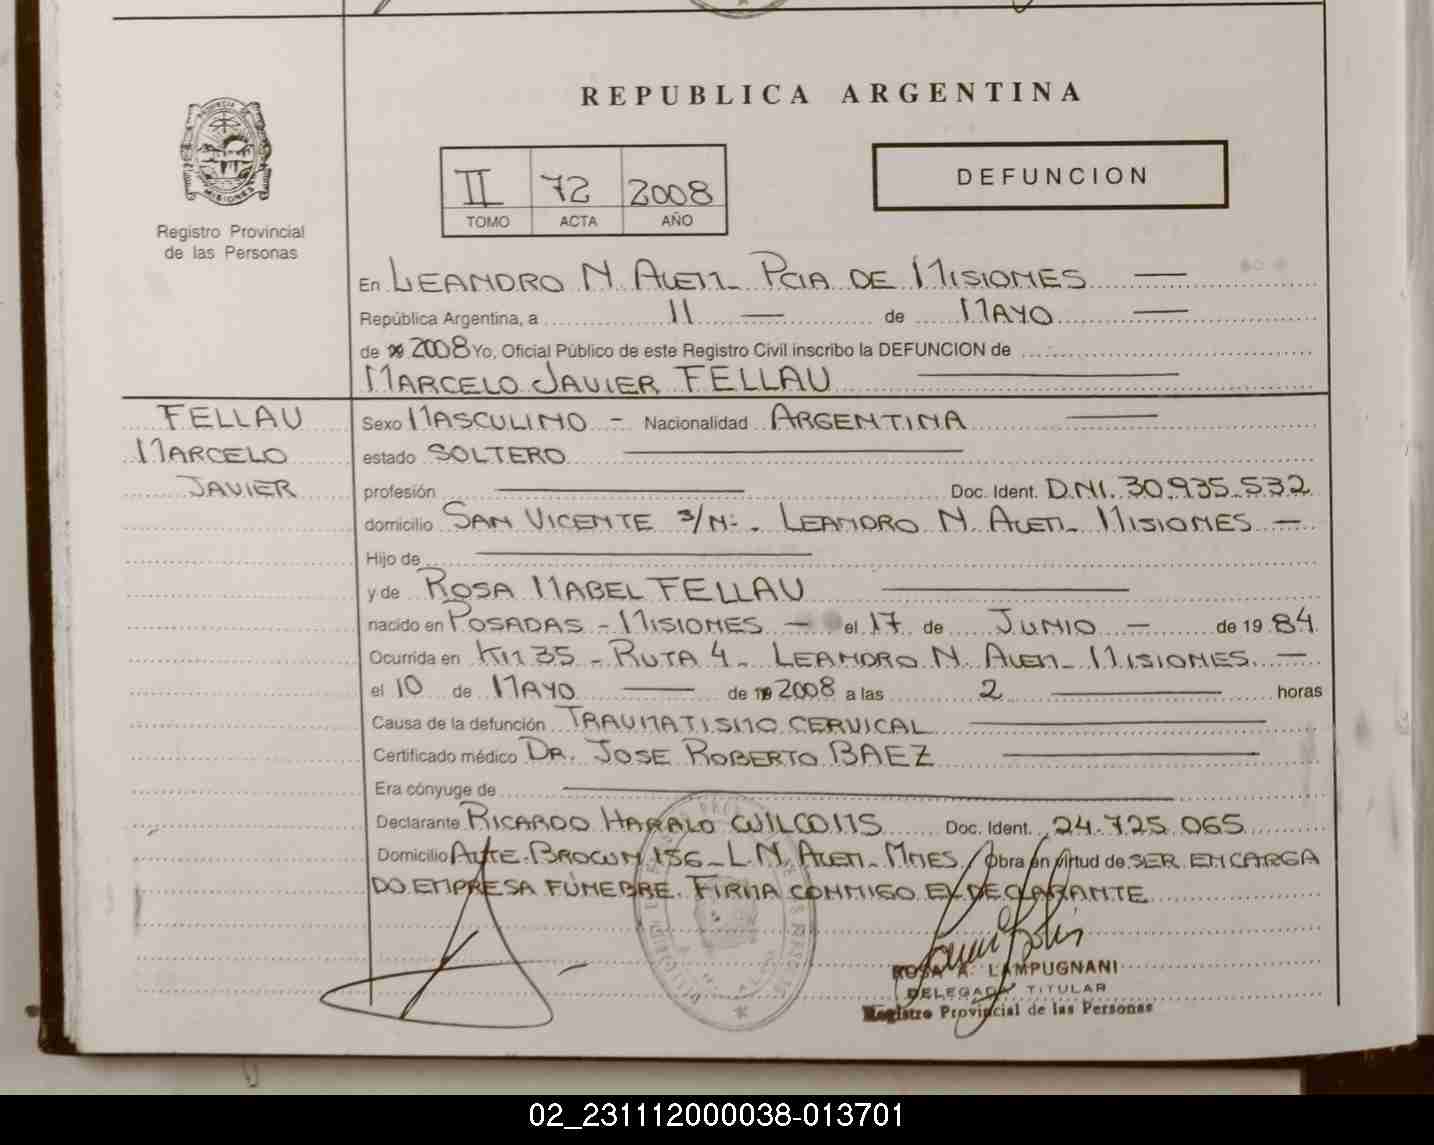 REPUBLICA ARGENTINA
II 72 2008
TOMO ACTA AÑO
DEFUNCION
PROVINCIA DE
MISIONES
Registro Provincial
de las Personas
En LEANDRO N. ALEM - PCIA DE MISIONES
República Argentina, a 11 de MAYO
de 2008 Yo, Oficial Público de este Registro Civil inscribo la DEFUNCION de
MARCELO JAVIER FELLAU
FELLAU
MARCELO
JAVIER
Sexo MASCULINO - Nacionalidad ARGENTINA
estado SOLTERO
profesión Doc. Ident. D.NI. 30.935.532
domicilio SAN VICENTE S/Nº. LEANDRO N. ALEM - MISIONES -
Hijo de
y de ROSA MABEL FELLAU
nacido en POSADAS - MISIONES - el 17 de JUNIO - de 19 84
Ocurrida en KM 35 - RUTA 4 - LEANDRO N. ALEM - MISIONES. -
el 10 de MAYO de 2008 a las 2 horas
Causa de la defunción TRAUMATISMO CERVICAL
Certificado médico DR. JOSE ROBERTO BAEZ
Era cónyuge de
Declarante RICARDO HARALD WILCOMS Doc. Ident. 24.725.065
Domicilio ALTE. BROWN 156 - L.N. ALEM - MNES. Obra en virtud de SER ENCARGA
DO EMPRESA FÚNEBRE. FIRMA CONMIGO EL DECLARANTE
ROSA A. LAMPUGNANI
DELEGADA TITULAR
Registro Provincial de las Personas
02_231112000038-013701